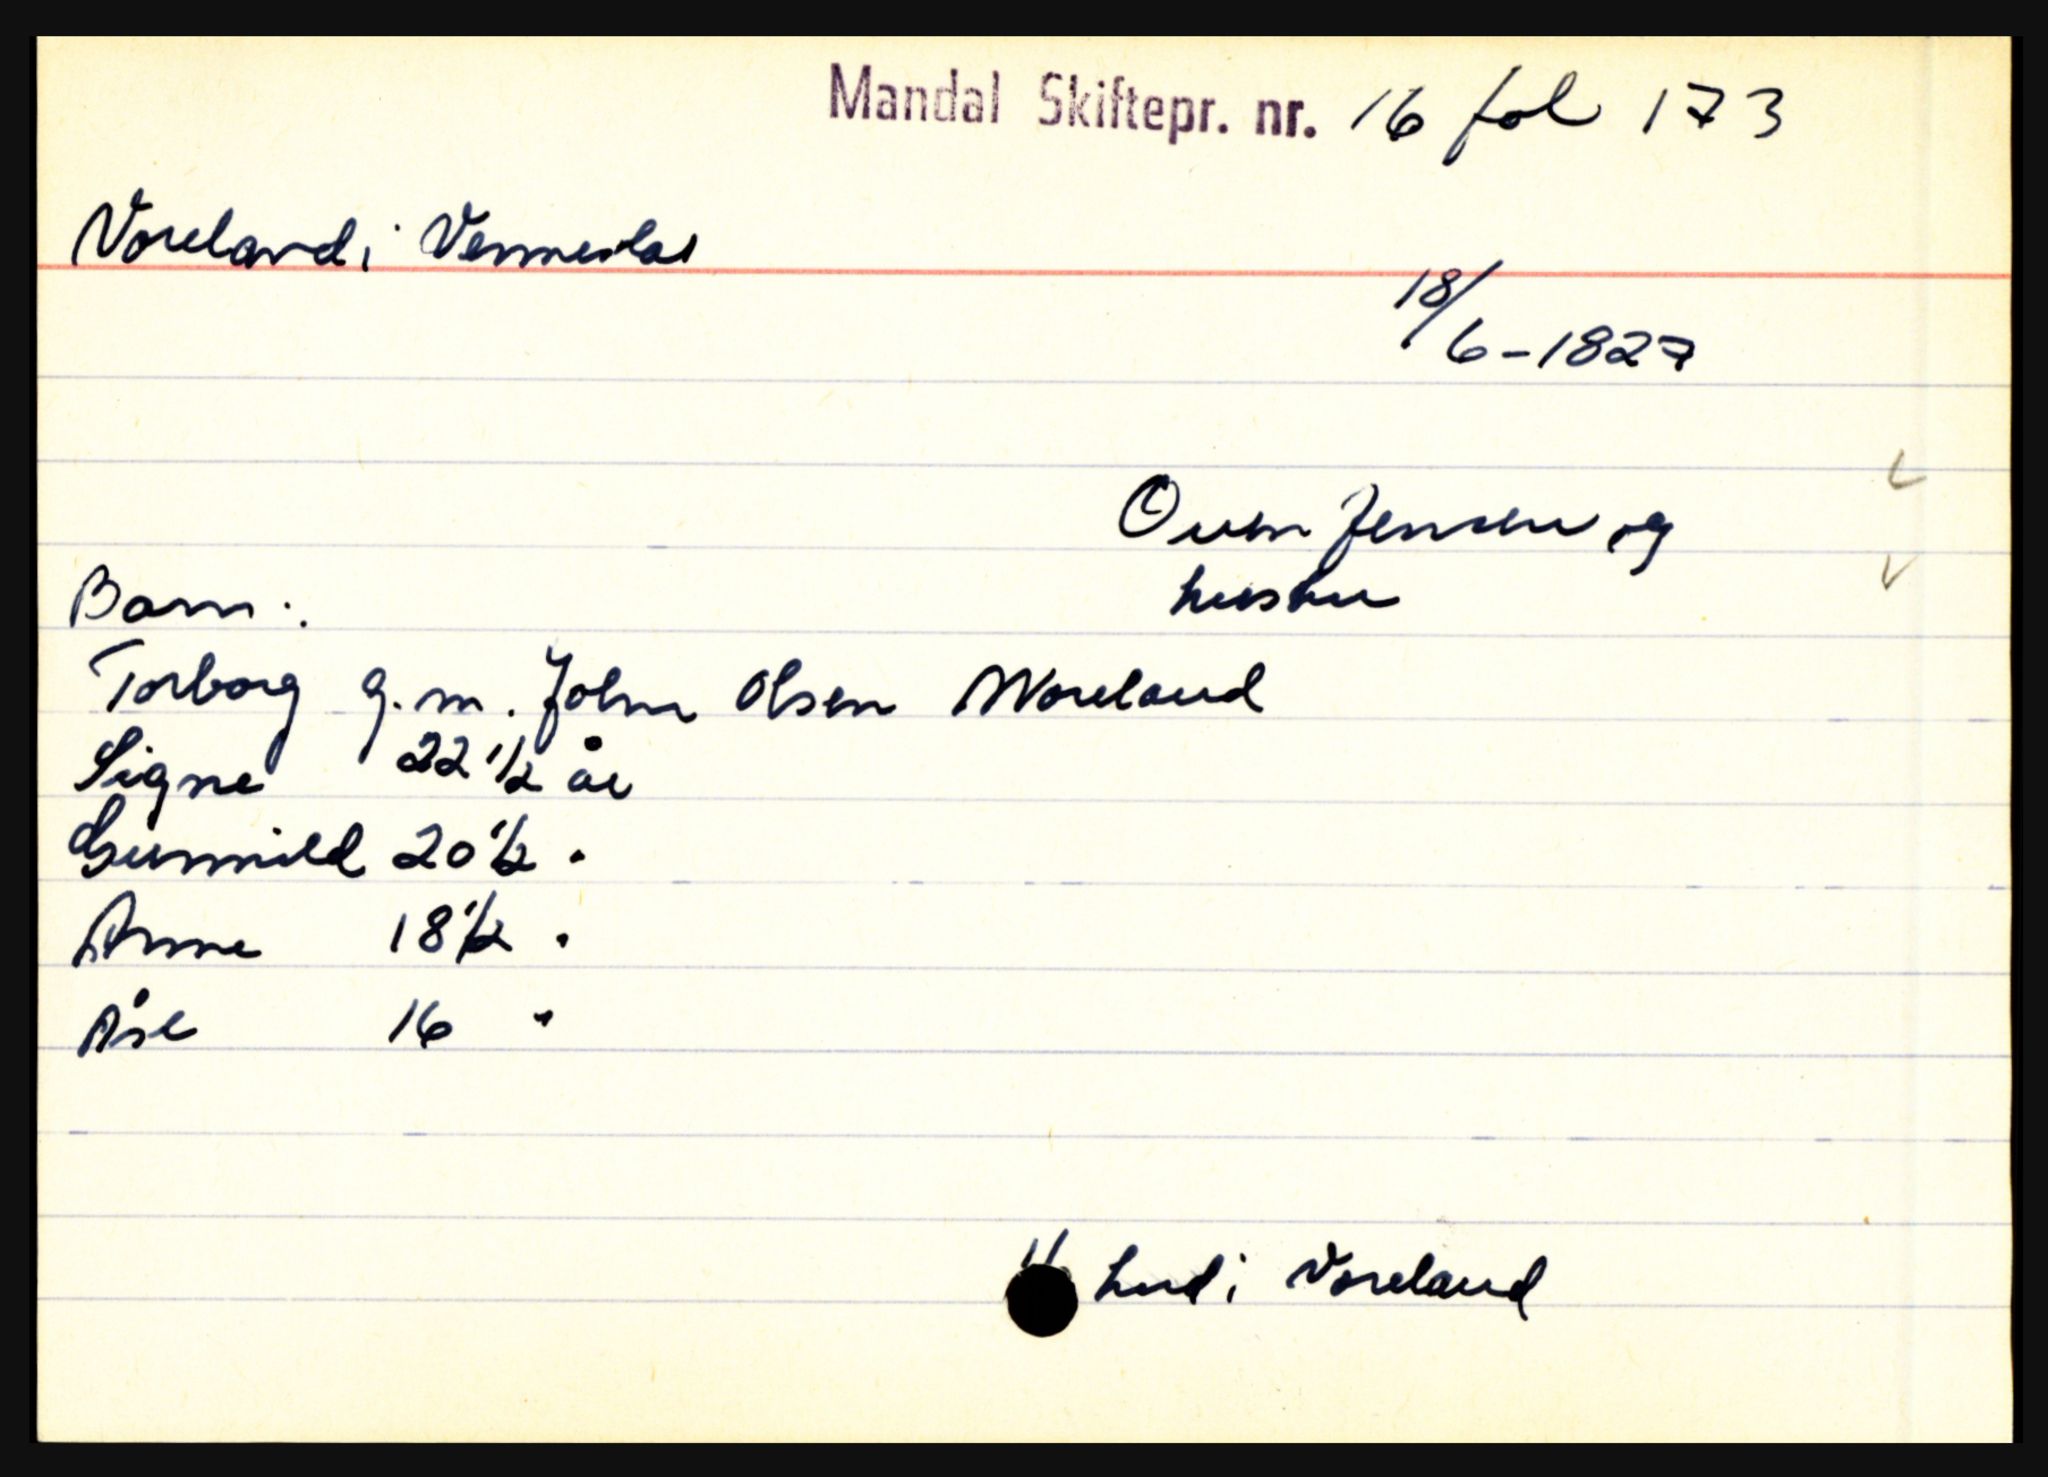 Mandal Skiftepr. nr. 16 fol 173
Voreland i Vennesla
18/6-1827
Oven Jensen og
hustru
Barn:
Torborg g.m. John Olsen Woreland
Signe 22 1/2 år
Gunnild 20 1/2 "
Anne 18 1/2 "
Åse 16 "
hud i Voreland